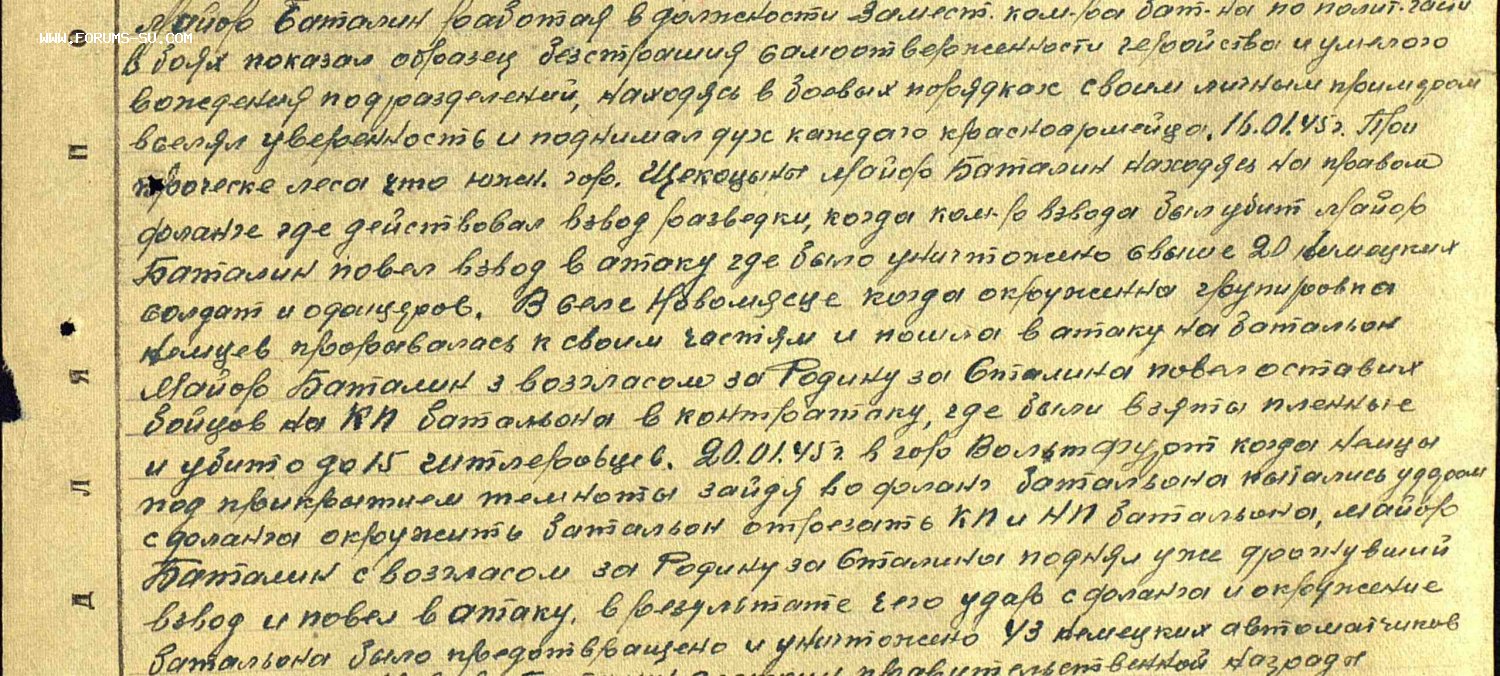 Майор Баталин работая в должности Замест. ком-ра бат-на по полит. части
WWW.FORUMS-SU.COM
в боях показал образец безстрашия самоотверженности геройства и умелого
вождения подразделений, находясь в боевых порядках своим личным примером
вселял уверенность и поднимал дух каждого красноармейца. 16.01.45г. При
прочёске леса что южн. гор. Щекоцыны Майор Баталин находясь на правом
фланге где действовал взвод разведки, когда ком-р взвода был убит Майор
Баталин повел взвод в атаку где было уничтожено свыше 20 немецких
солдат и офицеров. В селе Новомясце когда окруженна групировка
немцев прорывалась к своим частям и пошла в атаку на батальон
Майор Баталин з возгласом за Родину за Сталина повел оставих
бойцов на КП батальона в контратаку, где были взяты пленные
и убито до 15 гитлеровцев. 20.01.45г. в гор Вольтфурт когда немцы
под прикрытием темноты зайдя во фланг батальона пытались ударом
с фланга окружить батальон отрезать КП и НП батальона, майор
Баталин с возгласом за Родину за Сталина поднял уже дрогнувший
взвод и повел в атаку, в результате чего удар с фланга и окружение
батальона было предотвращено и уничтожено 43 немецких автоматчиков
правительственной награды
П
Я
Л
Д